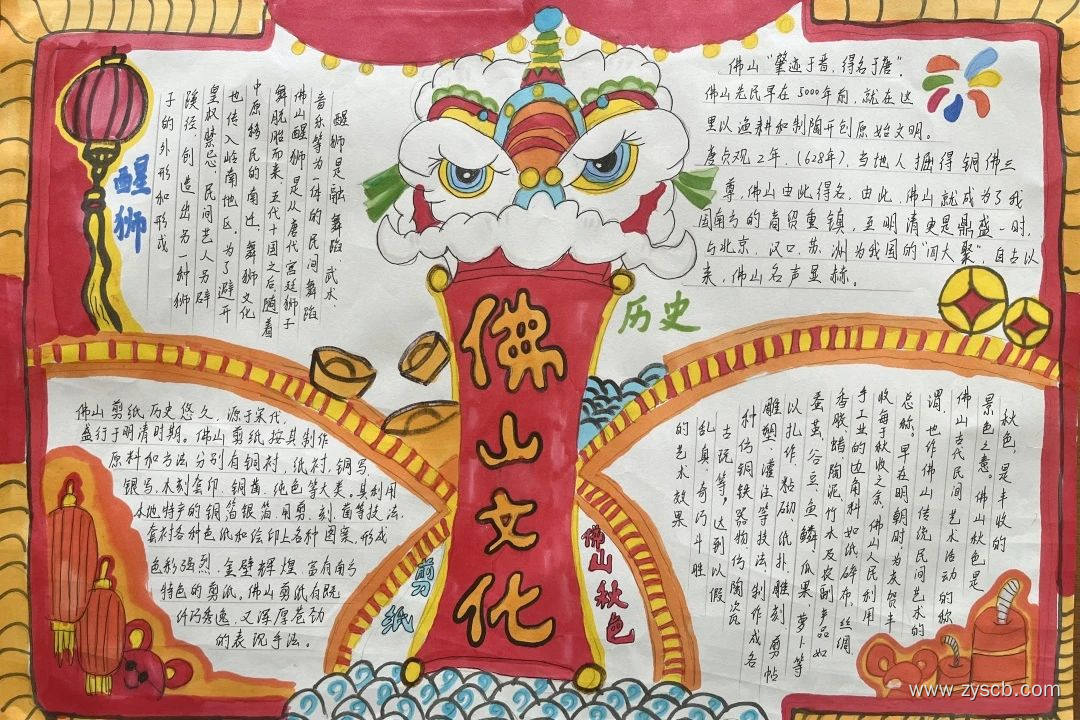 佛山文化
醒狮
醒狮是融舞蹈、武术、
音乐等为一体的民间舞蹈
佛山醒狮是从唐代宫廷狮子
舞脱胎而来,五代十国之后,随着
中原移民的南迁,舞狮文化
也传入岭南地区,为了避开
皇权禁忌,民间艺人另辟
蹊径,创造出另一种狮
子的外形和形成
历史
佛山“肇迹于晋,得名于唐”。
佛山先民早在5000年前,就在这
里以渔耕和制陶开创原始文明。
唐贞观2年,(628年),当地人掘得铜佛三
尊,佛山由此得名,由此,佛山就成为了我
国南方的商贸重镇,至明清更是鼎盛一时,
与北京、汉口、苏洲为我国的“四大聚”,自古以
来,佛山名声显赫。
剪纸
佛山剪纸历史悠久,源于宋代
盛行于明清时期。佛山剪纸按其制作
原料和方法分别有铜衬、纸衬、铜写、
银写、木刻套印、铜凿、纯色等大类。其利用
本地特产的铜箔银箔,用剪、刻、凿等技法,
套衬各种色纸和绘印上各种图案,形成
色彩强烈、金壁辉煌、富有南方
特色的剪纸,佛山剪纸有既
纤巧秀逸,又浑厚苍劲
的表现手法。
佛山秋色
秋色,是丰收的
景色之意。佛山秋色是
佛山古代民间艺术活动的称
谓,也作佛山传统民间艺术的
总称。早在明朝时为庆贺丰
收每于秋收之余,佛山人民利用
手工业的边角料如纸、碎布、丝绸
香胶、蜡、陶泥、竹木及农副产品如
蚕茧、谷豆、鱼鳞、瓜果、萝卜等
以扎作、粘砌、纸扑、雕刻、剪帖
雕塑、灌注等技法,制作成各
种仿铜铁器物、仿陶瓷
古玩等,达到以假
乱真,奇巧斗胜
的艺术效果
www.zyscb.com